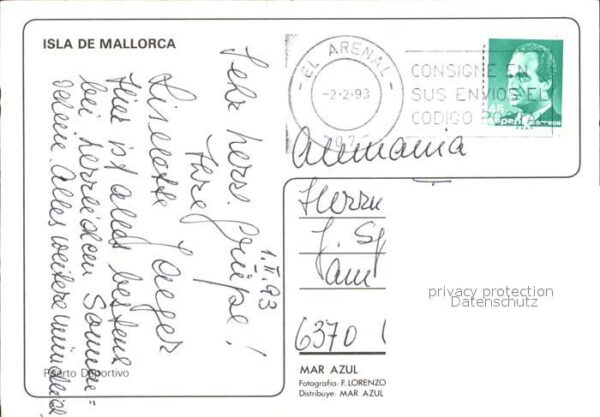 ISLA DE MALLORCA
EL ARENAL
-2-2-93
CONSIGNE EN
SUS ENVIOS EL
CODIGO PO
45
España
correos
Alemania
Herrn
J. Sp
Am
6370
privacy protection
Datenschutz
1.II.93
Sehr herzl. Grüße!
Ihre
Liselotte
Hier ist alles bestens
bei herrlichem Sonnen-
Alles weitere mündlich
Puerto Deportivo
MAR AZUL
Fotografía: F. LORENZO
Distribuye: MAR AZUL